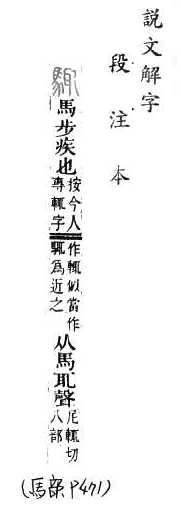 説文解字
段注本
馬步疾也按今人專輒字作輒似當作爲近之从馬耴聲尼輒切八部
(馬部 P471)